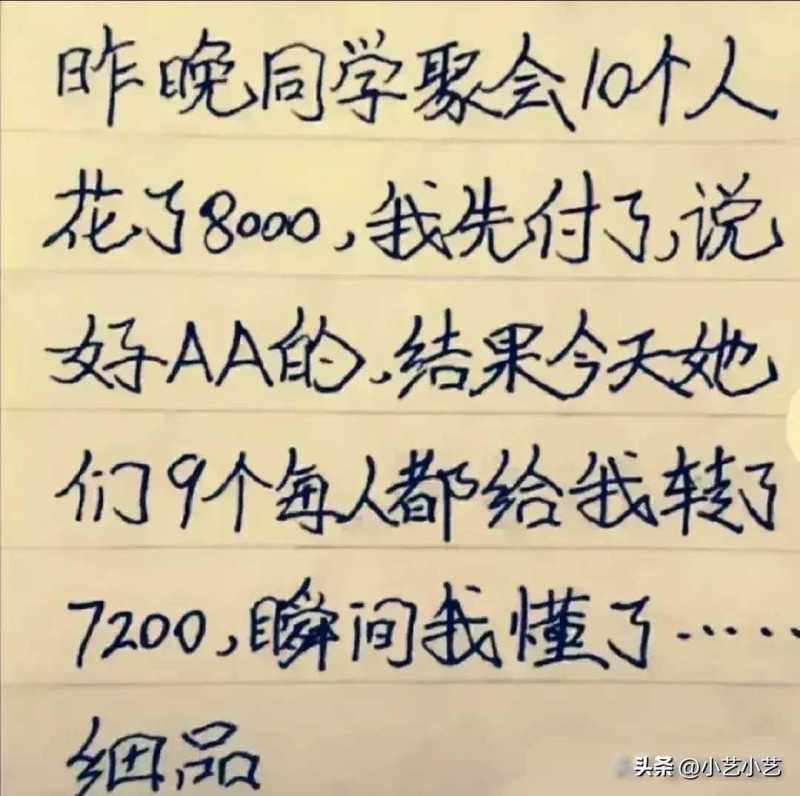 昨晚同学聚会10个人
花了8000,我先付了,说
好AA的,结果今天她
们9个每人都给我转了
7200,瞬间我懂了……
细品
头条 @小艺小艺